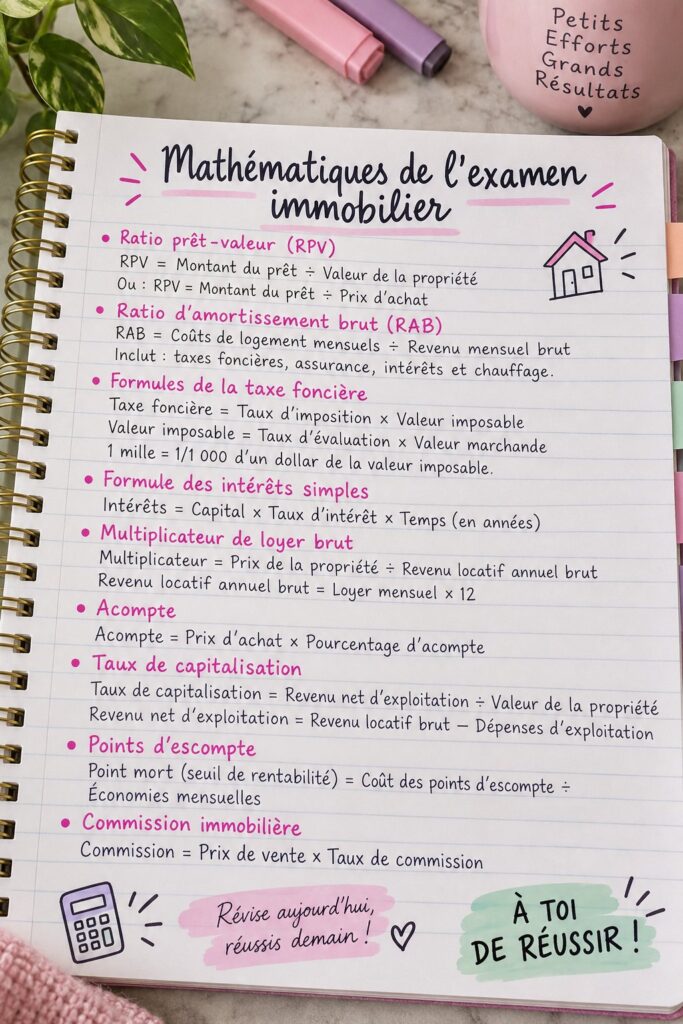 Petits
Efforts
Grands
Résultats
Mathématiques de l'examen
immobilier
• Ratio prêt-valeur (RPV)
RPV = Montant du prêt ÷ Valeur de la propriété
Ou : RPV = Montant du prêt ÷ Prix d'achat
• Ratio d'amortissement brut (RAB)
RAB = Coûts de logement mensuels ÷ Revenu mensuel brut
Inclut : taxes foncières, assurance, intérêts et chauffage.
• Formules de la taxe foncière
Taxe foncière = Taux d'imposition × Valeur imposable
Valeur imposable = Taux d'évaluation × Valeur marchande
1 mille = 1/1 000 d'un dollar de la valeur imposable.
• Formule des intérêts simples
Intérêts = Capital × Taux d'intérêt × Temps (en années)
• Multiplicateur de loyer brut
Multiplicateur = Prix de la propriété ÷ Revenu locatif annuel brut
Revenu locatif annuel brut = Loyer mensuel × 12
• Acompte
Acompte = Prix d'achat × Pourcentage d'acompte
• Taux de capitalisation
Taux de capitalisation = Revenu net d'exploitation ÷ Valeur de la propriété
Revenu net d'exploitation = Revenu locatif brut – Dépenses d'exploitation
• Points d'escompte
Point mort (seuil de rentabilité) = Coût des points d'escompte ÷
Économies mensuelles
• Commission immobilière
Commission = Prix de vente x Taux de commission
Révise aujourd'hui,
réussis demain !
À TOI
DE RÉUSSIR !